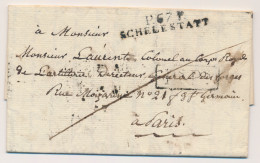 P.67.P.
SCHELESTATT
à Monsieur
Monsieur Laurent Colonel au Corps Royal
de l'artillerie Directeur général des forges
Rue N° 21 f. St Germain
à Paris